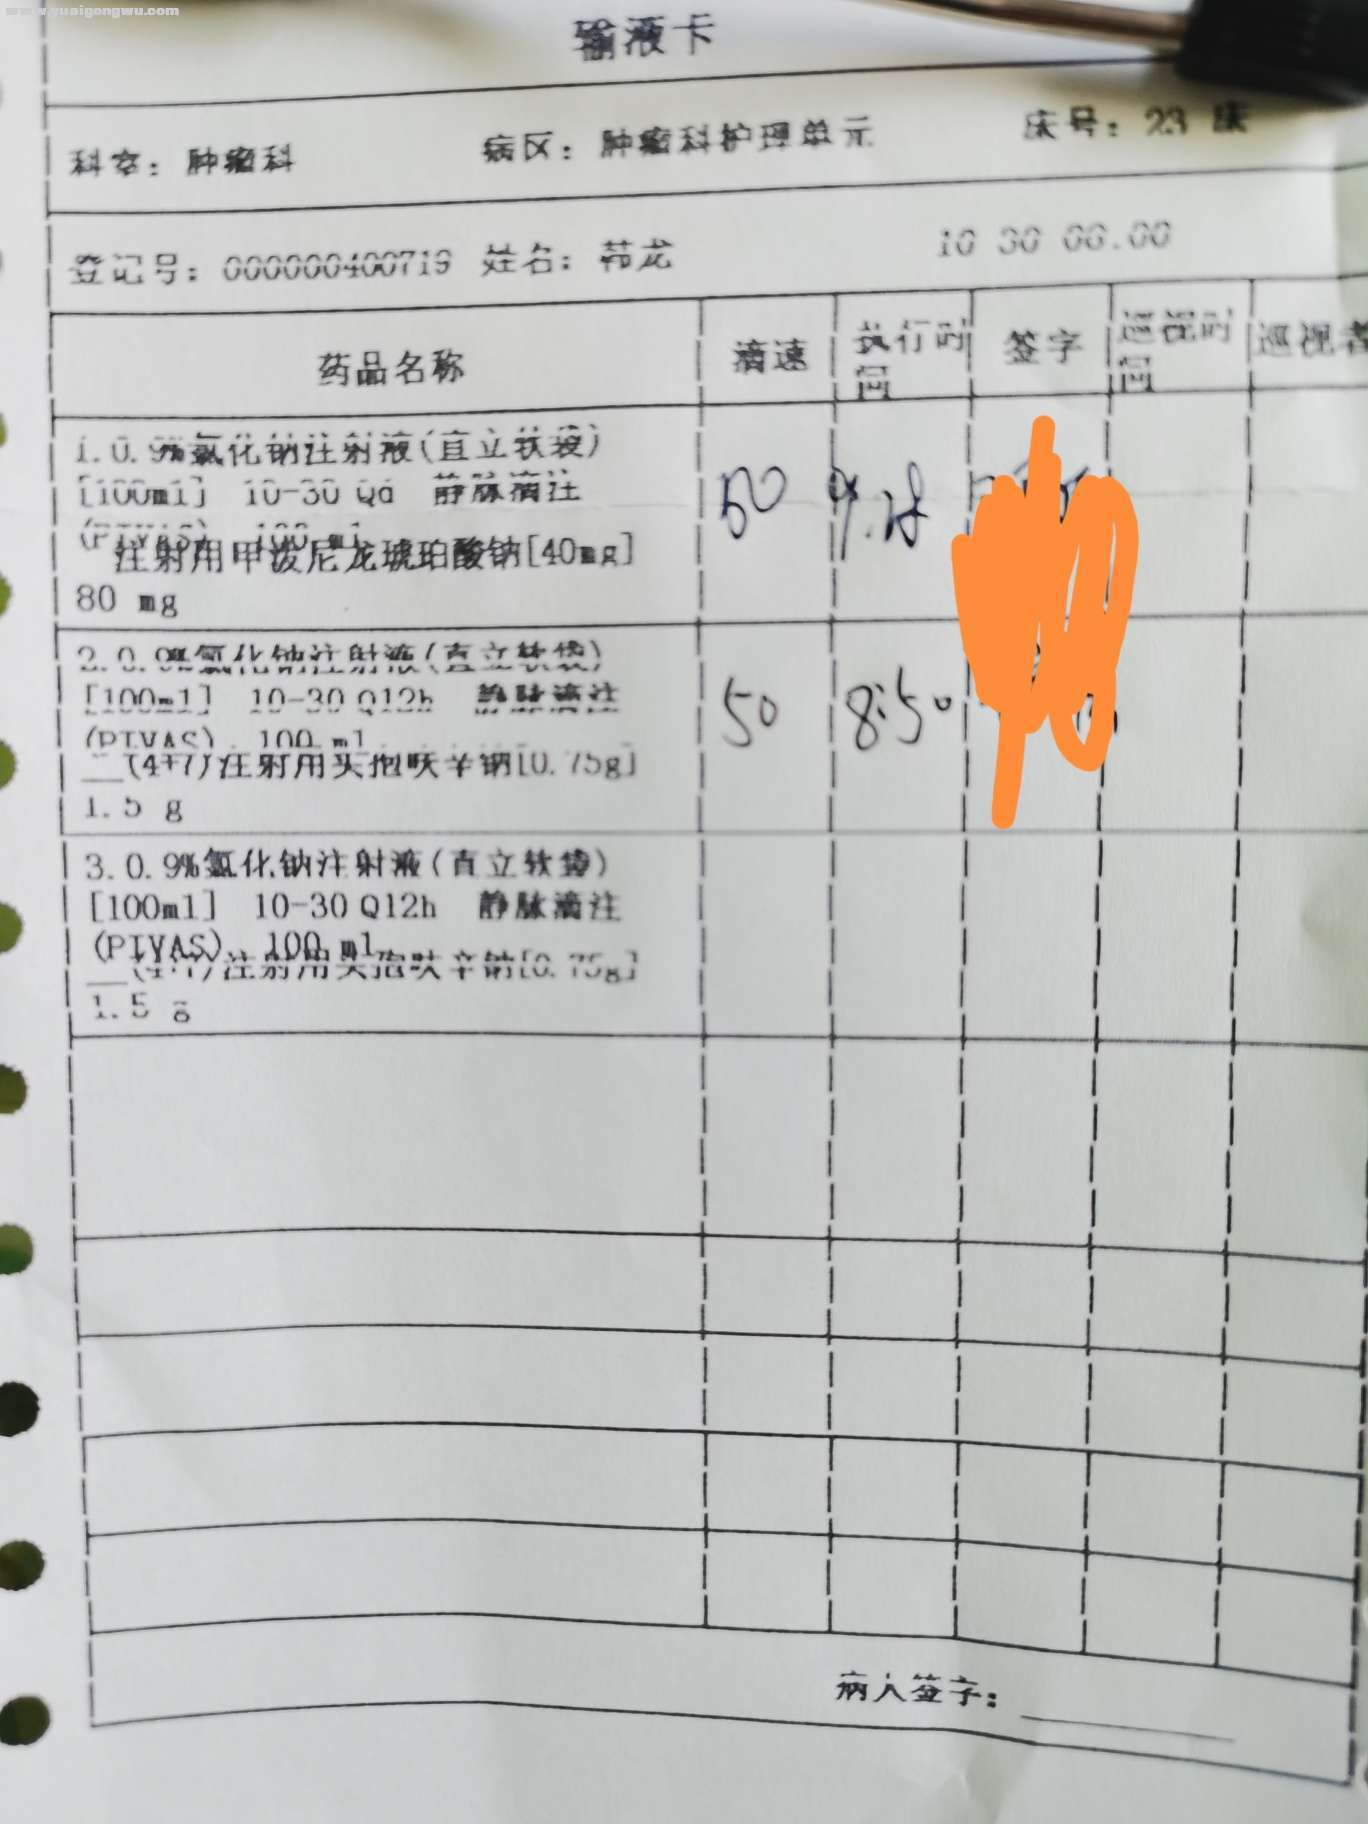 www.yuaigongwu.com
输液卡
科室：肿瘤科 病区：肿瘤科护理单元 床号：23 床
登记号：000000400719 姓名：韩龙 10 30 00.00
药品名称 滴速 执行时间 签字 巡视时间 巡视者
1.0.9%氯化钠注射液(直立软袋)
[100ml] 10-30 Qd 静脉滴注
(PIVAS) 100 ml
注射用甲泼尼龙琥珀酸钠[40mg]
80 mg
2.0.9%氯化钠注射液(直立软袋)
[100ml] 10-30 Q12h 静脉滴注 50 8:50
(PIVAS) 100 ml
__(4+7)注射用头孢呋辛钠[0.75g]
1.5 g
3.0.9%氯化钠注射液(直立软袋)
[100ml] 10-30 Q12h 静脉滴注
(PIVAS) 100 ml
__(4+7)注射用头孢呋辛钠[0.75g]
1.5 g
病人签字：